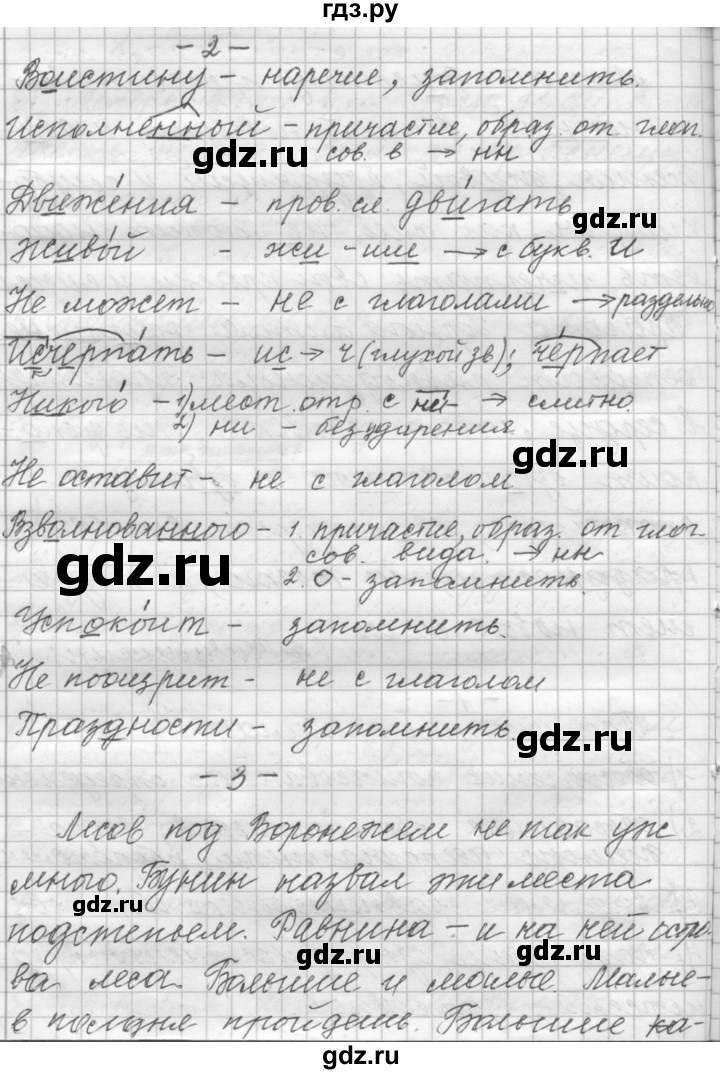 гдз.ру
- 2 -
Воистину - наречие, запомнить.
Исполненный - причастие, образ. от глаг.
сов. в → нн
gdz.ru
Движе́ния - пров. сл. дви́гать
gdz.ru
Живо́й - жи - ши → с букв. И
Не может - не с глаголами → раздельно
Исчерпа́ть - ис → ч (глухой зв); че́рпает
Никого́ - 1) мест. отр. с ни- → слитно.
2) ни - без ударения
gdz.ru
Не оставит - не с глаголом
Взволнованного - 1. причастие, образ. от глаг.
сов. вида. → нн
gdz.ru
2. О - запомнить.
gdz.ru
Успоко́ит - запомнить.
Не поощрит - не с глаголом
Праздности - запомнить.
gdz.ru
- 3 -
Лесов под Воронежем не так уж
много. Бунин назвал эти места
gdz.ru
подстепьем. Равнина - и на ней остро-
gdz.ru gdz.ru
ва леса. Большие и малые. Малые -
в полдня пройдешь. Большие ка-
gdz.ru